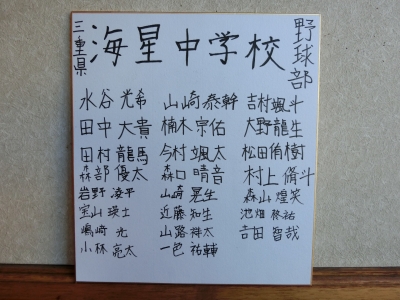 三重県 海星中学校 野球部
水谷 光希 山崎 泰幹 吉村颯斗
田中 大貴 楠木 宗佑 大野龍生
田村 龍馬 今村 颯太 松田侑樹
森部 優太 森口 晴音 村上脩斗
岩野 凌平 山崎 晃生 森山 煌笑
宝山 瑛士 近藤 知生 池畑 柊祐
嶋崎 光 山路 祥太 吉田 智哉
小林 亮太 一色 祐輔